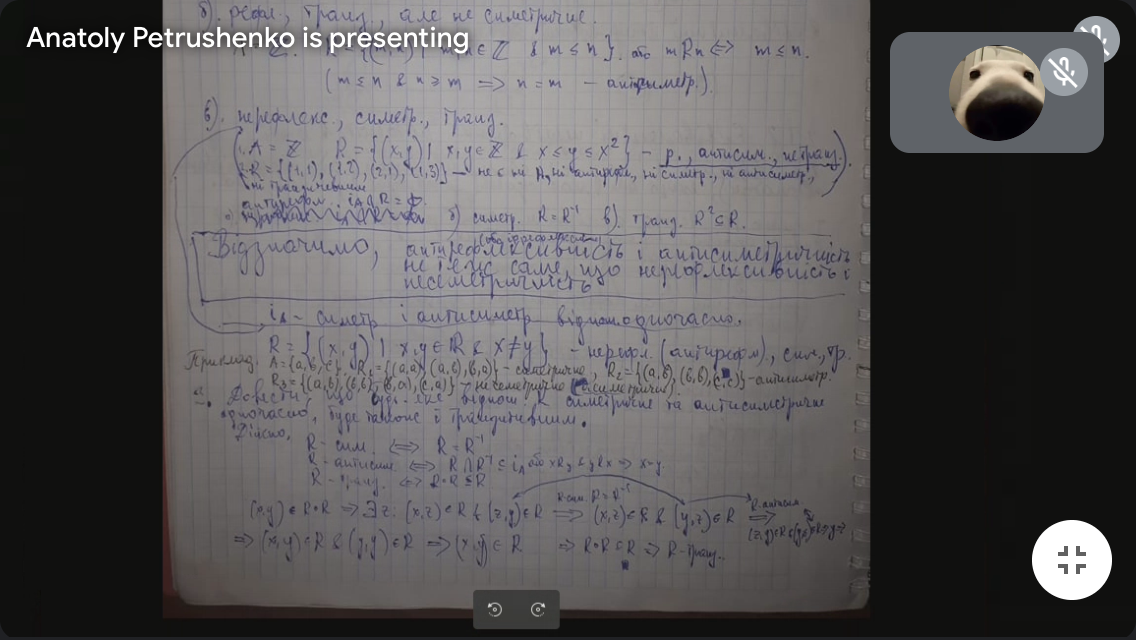 Anatoly Petrushenko is presenting
б). рефл., транз., але не симетричне.
R = {(m,n) | m,n ∈ ℤ & m ≤ n}. або mRn ⇔ m ≤ n.
(m ≤ n & n ≥ m ⟹ n = m – антисиметр.).
в). нерефлекс., симетр., транз.
A = ℤ R = {(x,y) | x,y ∈ ℤ & x ≤ y ≤ x²} – р., антисим., не транз.
R = {(1,1), (1,2), (2,1), (1,3)} – не є ні ні антирефл, ні симетр., ні антисиметр.,
ні транзитивним
антирефл. i_A ∩ R = ∅.
б) симетр. R = R⁻¹ в). транз. R² ⊆ R.
Відзначимо, антирефлексивність і антисиметричність
не те саме, що нерефлексивність і
несеметричність
i_A – симетр і антисиметр віднош. одночасно.
R = {(x,y) | x,y ∈ ℝ & x ≠ y} – нерефл. (антирефл)., сим.,
Приклад. A = {a,b,c}. R₁ = {(a,a), (a,b), (b,a)} – симетрично, R₂ = {(a,b), (b,b), (c,c)} – антисиметр.
R₃ = {(a,b), (b,b), (b,a), (c,a)} – не семетрично
Довести, що будь-яке віднош. R симетричне та антисиметричне
одночасно, буде також і транзитивним.
Дійсно,
R – сим. ⟺ R = R⁻¹
R – антисим. ⟺ R ∩ R⁻¹ ⊆ i_A або xRy & yRx ⟹ x=y.
R – транз. ⟺ R∘R ⊆ R
(x,y) ∈ R∘R ⟹ ∃z: (x,z) ∈ R & (z,y) ∈ R ⟹ (x,z) ∈ R & (y,z) ∈ R ⟹
R-сим. R = R⁻¹
R-антисим.
(z,y) ∈ R & (y,z) ∈ R ⟹ y=z
⟹ (x,y) ∈ R & (y,y) ∈ R ⟹ (x,y) ∈ R ⟹ R∘R ⊆ R ⟹ R – транз.